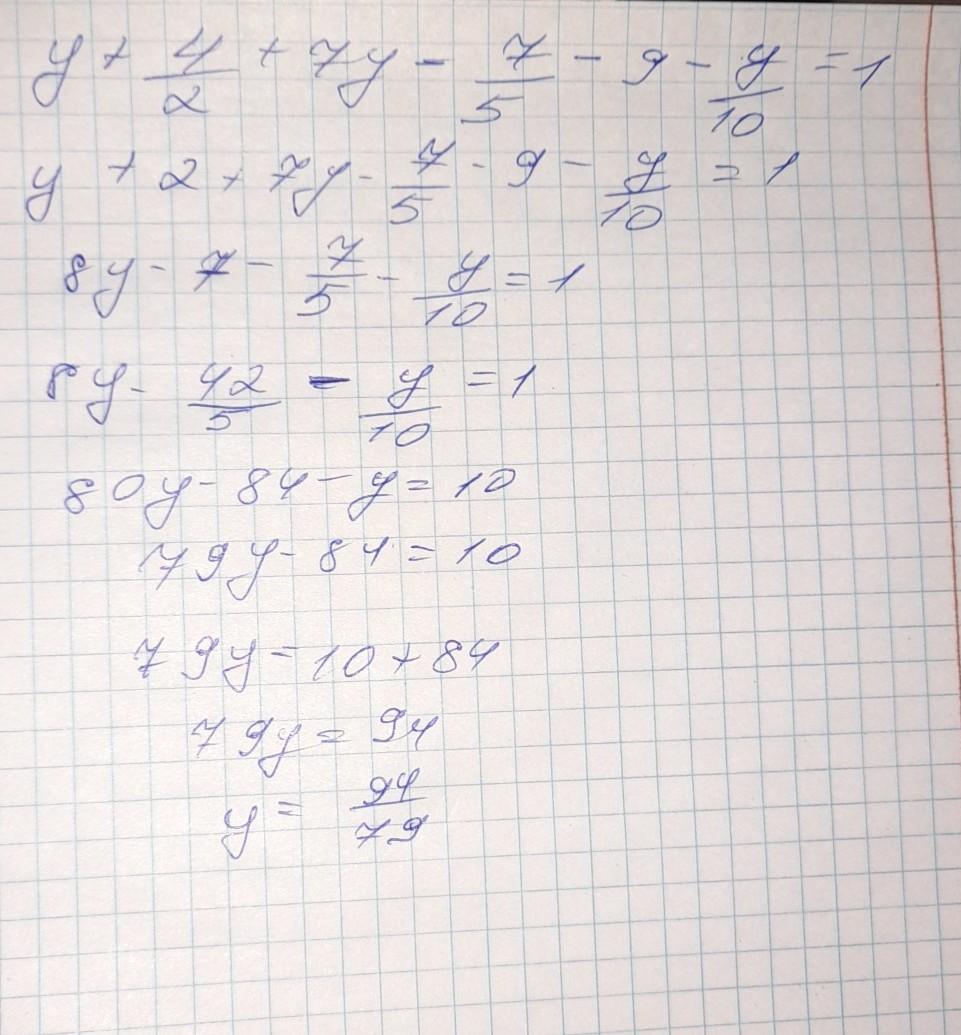 y + 4/2 + 7y - 7/5 - 9 - y/10 = 1
y + 2 + 7y - 7/5 - 9 - y/10 = 1
8y - 7 - 7/5 - y/10 = 1
8y - 42/5 - y/10 = 1
80y - 84 - y = 10
79y - 84 = 10
79y = 10 + 84
79y = 94
y = 94/79